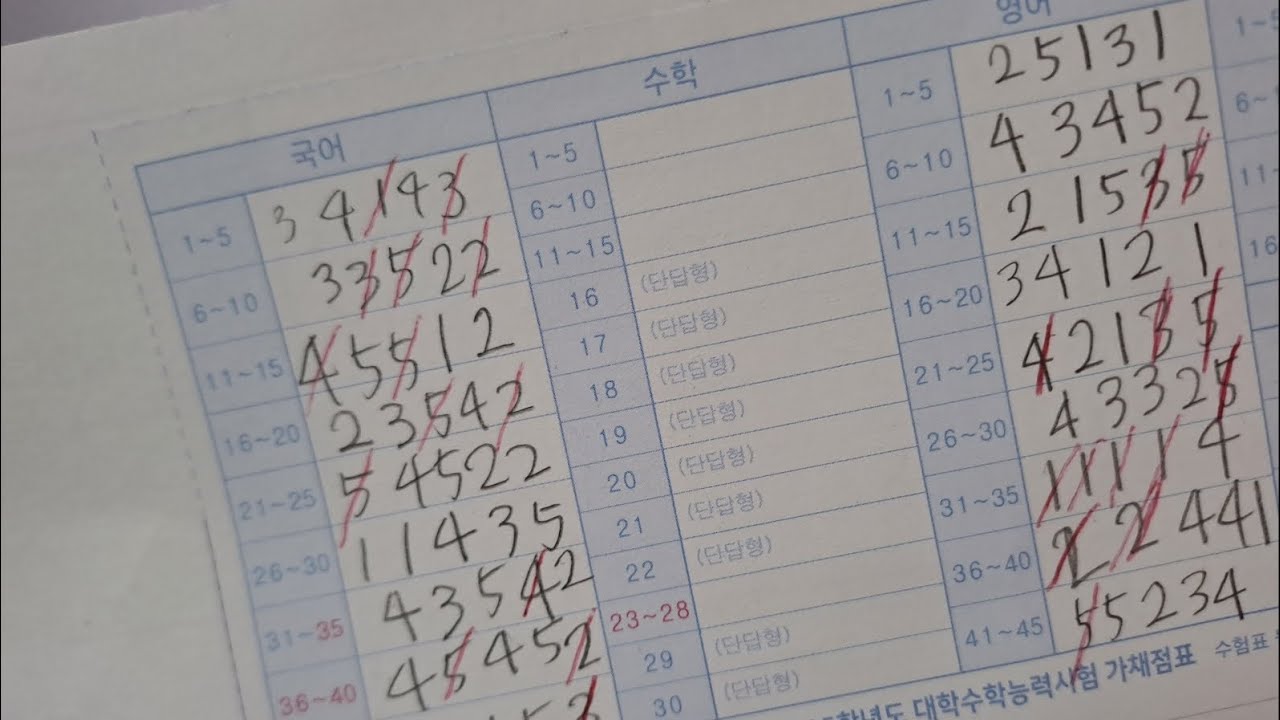 국어
수학
영어
1~5
3 4 1 4 3
6~10
3 3 5 2 2
11~15
4 5 5 1 2
16~20
2 3 5 4 2
21~25
5 4 5 2 2
26~30
1 1 4 3 5
31~35
4 3 5 4 2
36~40
4 5 4 5 2
1~5
6~10
11~15
16 (단답형)
17 (단답형)
18 (단답형)
19 (단답형)
20 (단답형)
21 (단답형)
22 (단답형)
23~28
29 (단답형)
30 (단답형)
1~5
2 5 1 3 1
6~10
4 3 4 5 2
11~15
2 1 5 3 5
16~20
3 4 1 2 1
21~25
4 2 1 3 5
26~30
4 3 3 2 5
31~35
1 1 1 1 4
36~40
2 2 4 4 1
41~45
5 5 2 3 4
대학수학능력시험 가채점표
수험표